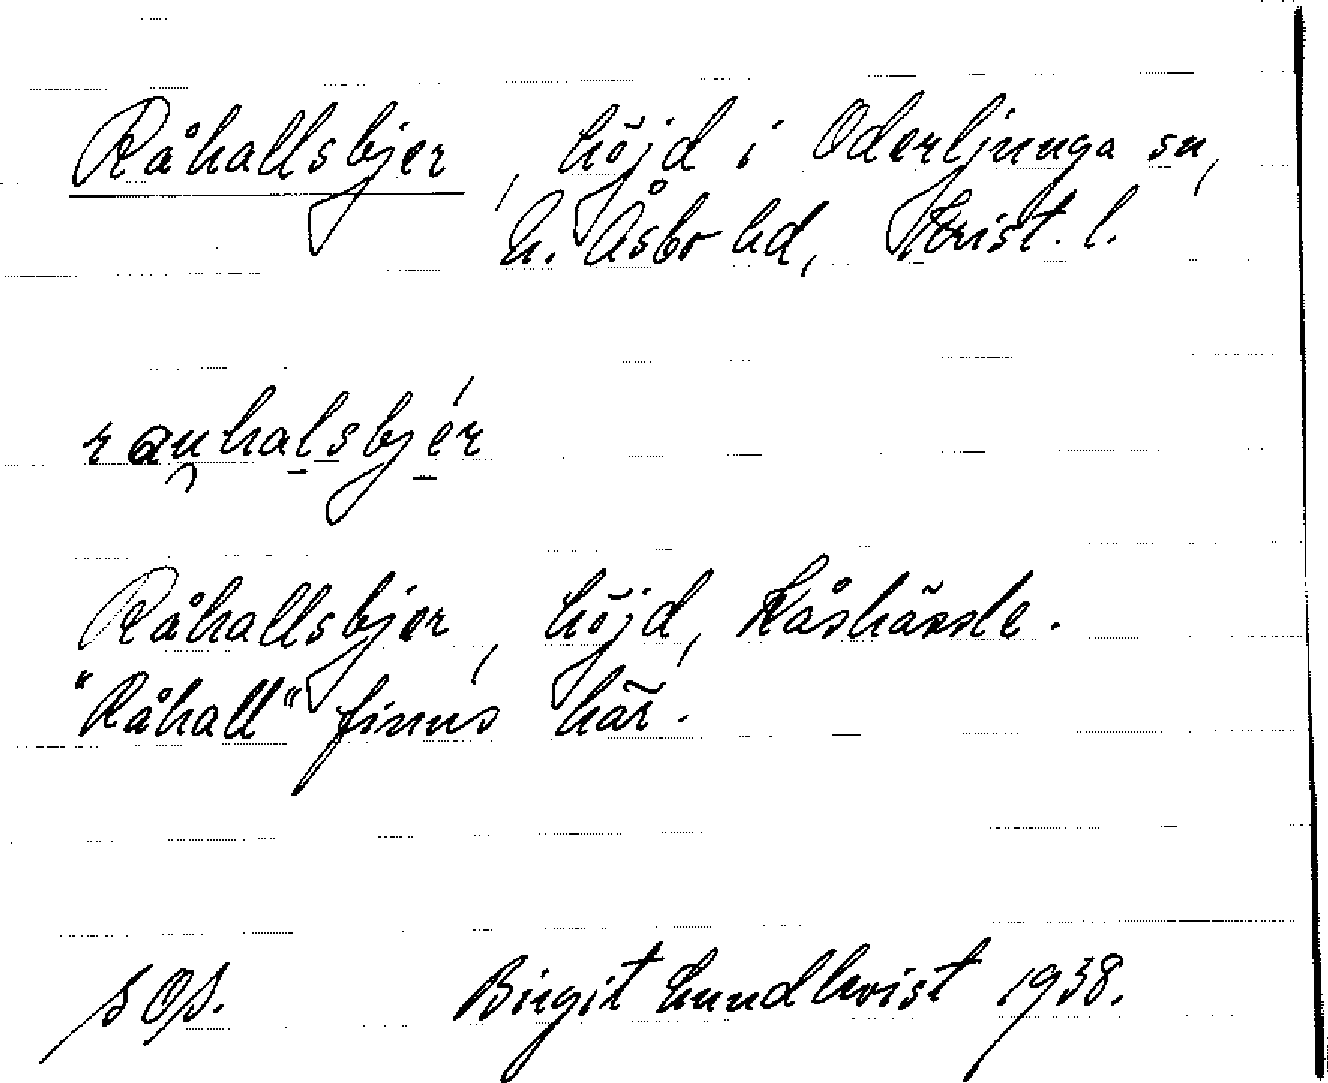 Råhallsbjer, höjd i Oderljunga sn,
N. Åsbo hd, Krist. l.
rau̯halsbjér
Råhallsbjer, höjd,
"Råhall" finns här.
sOs. Birgit Lundkvist 1938.